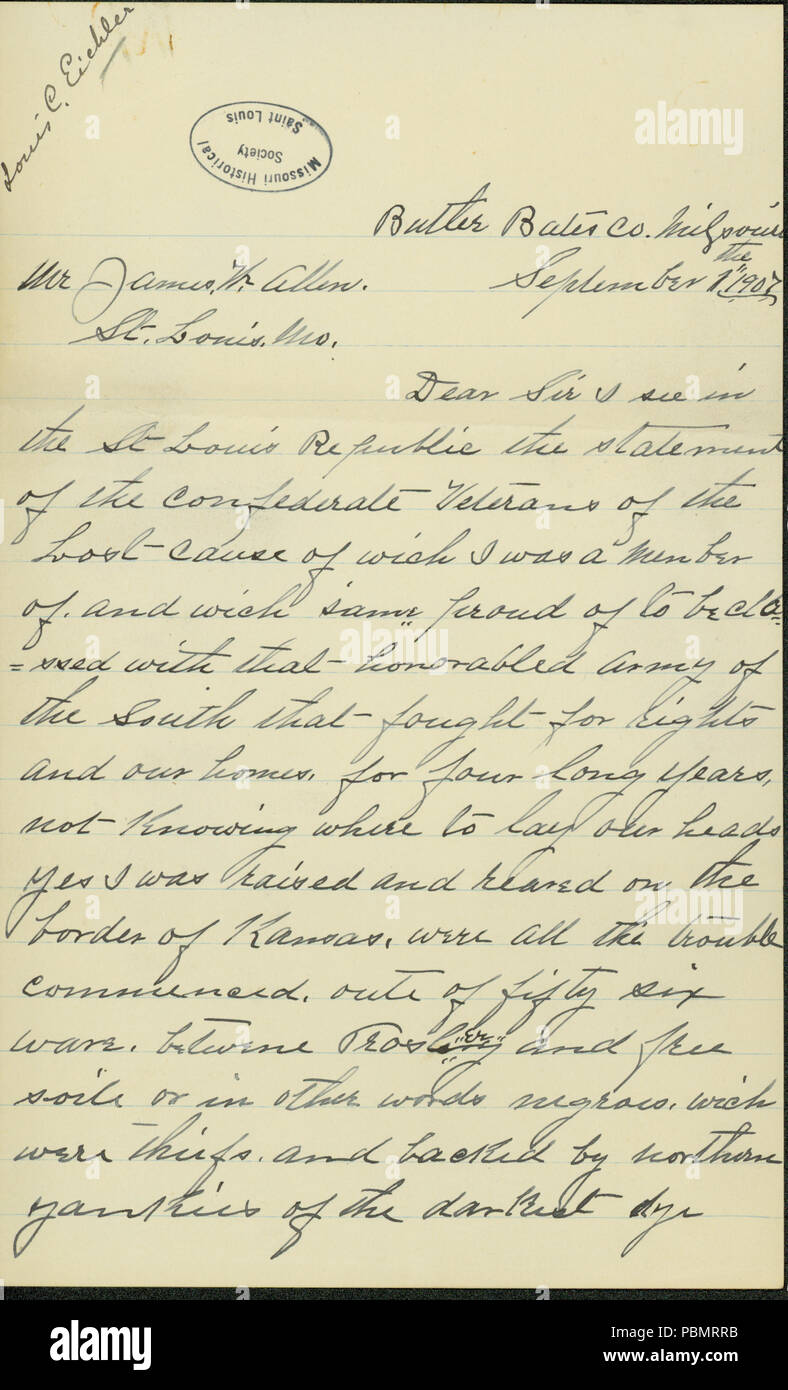 Louis C. Eichler
Missouri Historical
Society
Saint Louis
Butler Bates co. Missouri
the
Mr James. W. Allen. September 1" 1907
St. Louis. Mo.
Dear Sir I see in
the St Louis Republic the statement
of the confederate Veterans of the
Lost cause of wich I was a member
of. and wich "same" proud of to be cla=
=ssed with that honorabled army of
the South that fought for rights
and our homes. for four long years,
not Knowing where to lay our heads
yes I was raised and reared on the
border of Kansas. were all the trouble
commenced. oute of fifty six
ware. betwene and free
soile or in other words negroes. wich
were thiefs. and backed by northern
yankies of the darkest dye
alamy
Image ID: PBMRRB
www.alamy.com